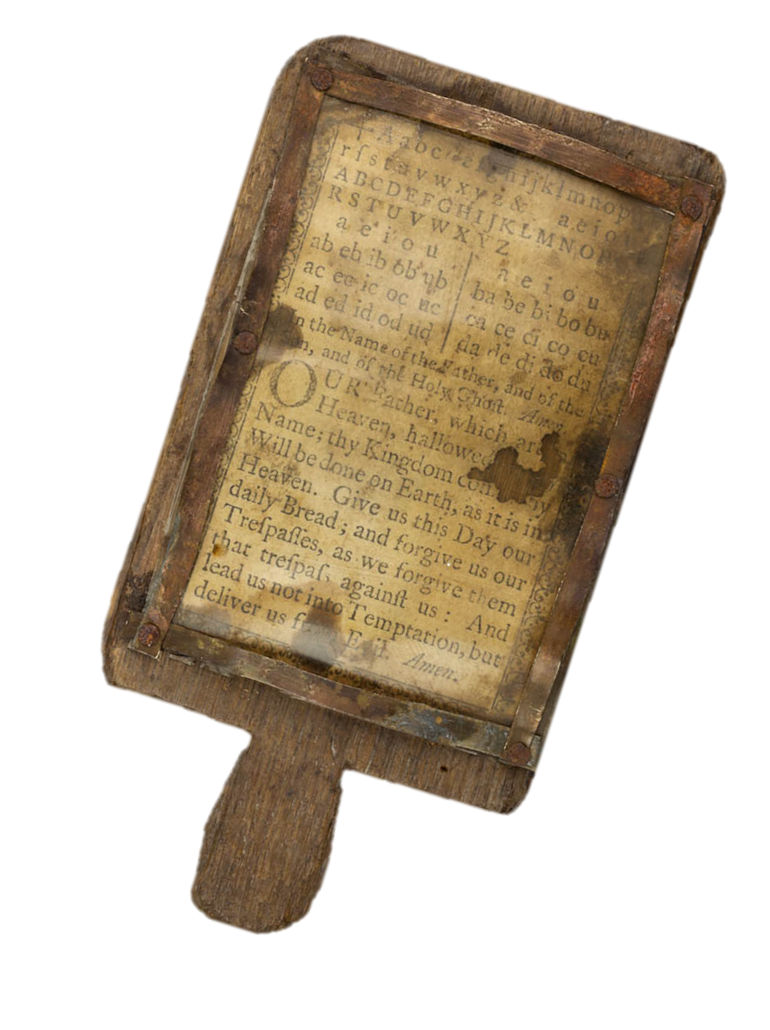 † A a b c e hijklmnop
rſstuvwxyz & a e i o
ABCDEFGHIJKLMNOP
RSTUVWXYZ
a e i o u | a e i o u
ab eb ib ob ub | ba be bi bo bu
ac ec ic oc uc | ca ce ci co cu
ad ed id od ud | da de di do du
in the Name of the Father, and of the
and of the Holy Ghost. Amen.
OUR Father, which
Heaven, hallowed
Name; thy Kingdom
Will be done on Earth, as it is in
Heaven. Give us this Day our
daily Bread; and forgive us our
Treſpaſſes, as we forgive them
that treſpaſs againſt us: And
lead us not into Temptation, but
deliver us Evil. Amen.